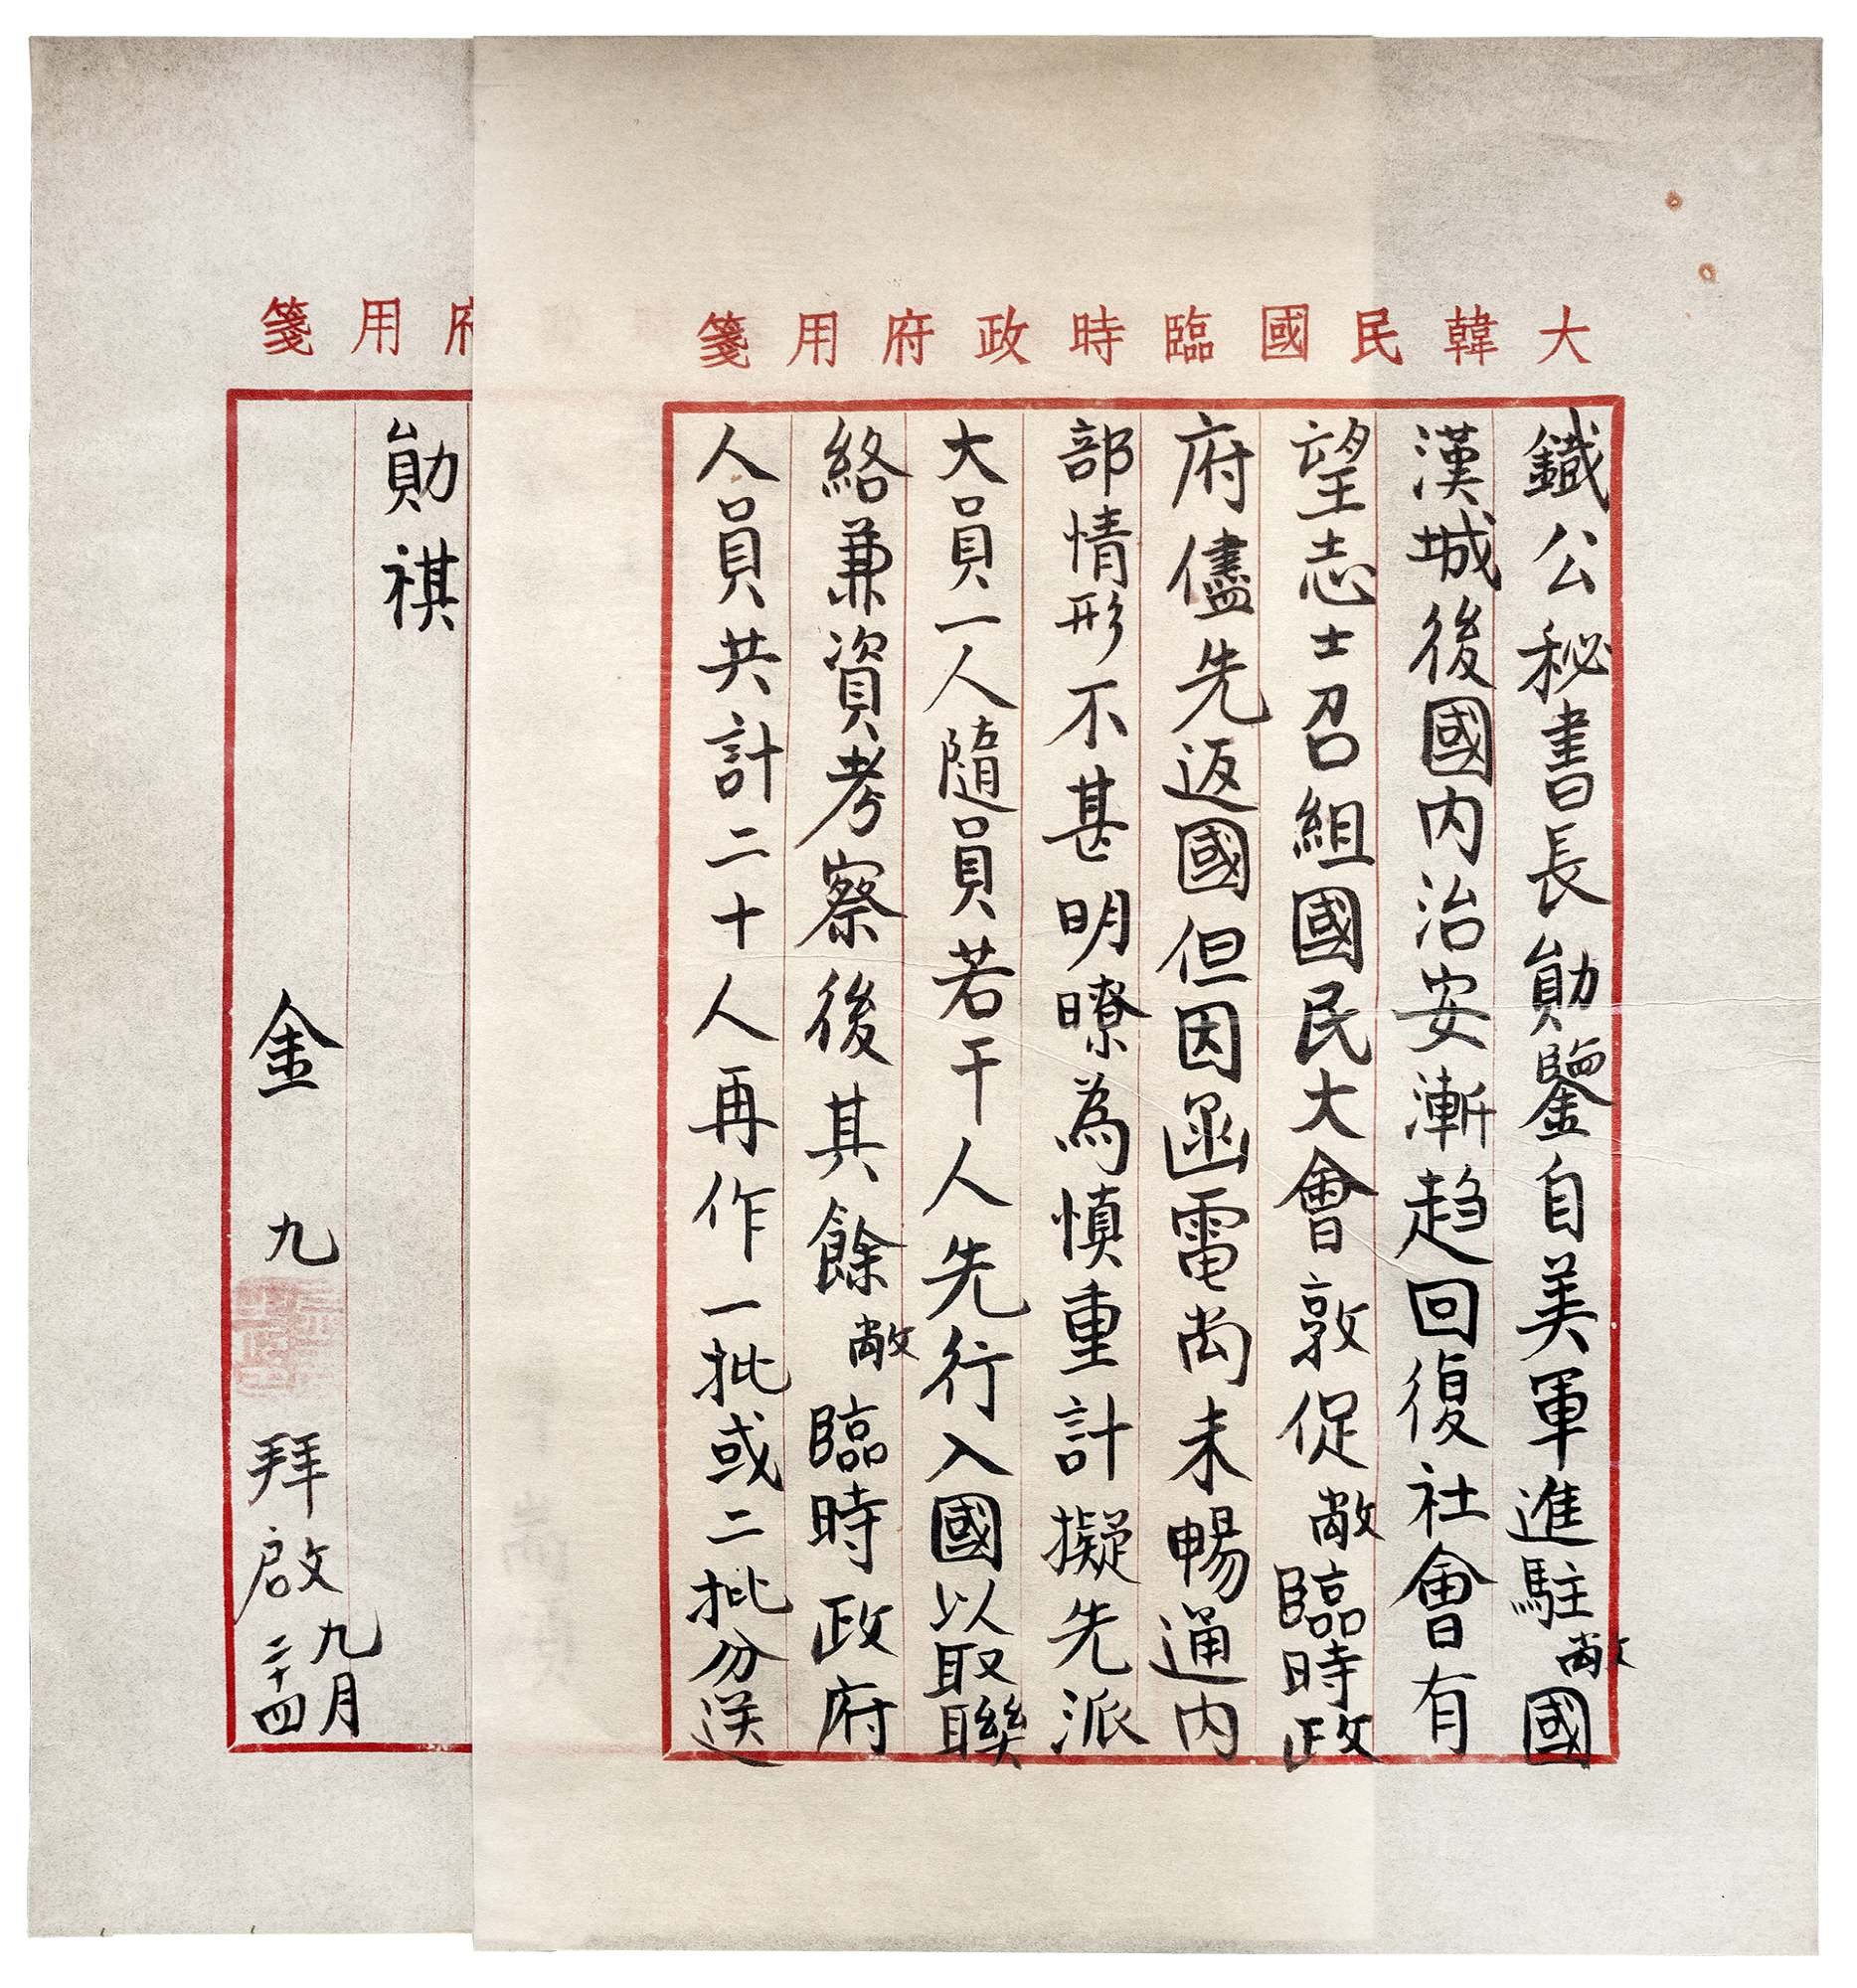 大韓民國臨時政府用箋
鐵公秘書長勛鑒自美軍進駐敝國
漢城後國内治安漸趋回復社會有
望志士召組國民大會敦促敝臨時政
府儘先返國但因函電尚未暢通内
部情形不甚明暸為慎重計擬先派
大員一人隨員若干人先行入國以取聯
絡兼資考察後其餘敝臨時政府
人員共計二十人再作一批或二批分送
府用箋
勛祺
金九拜啟九月
二十四